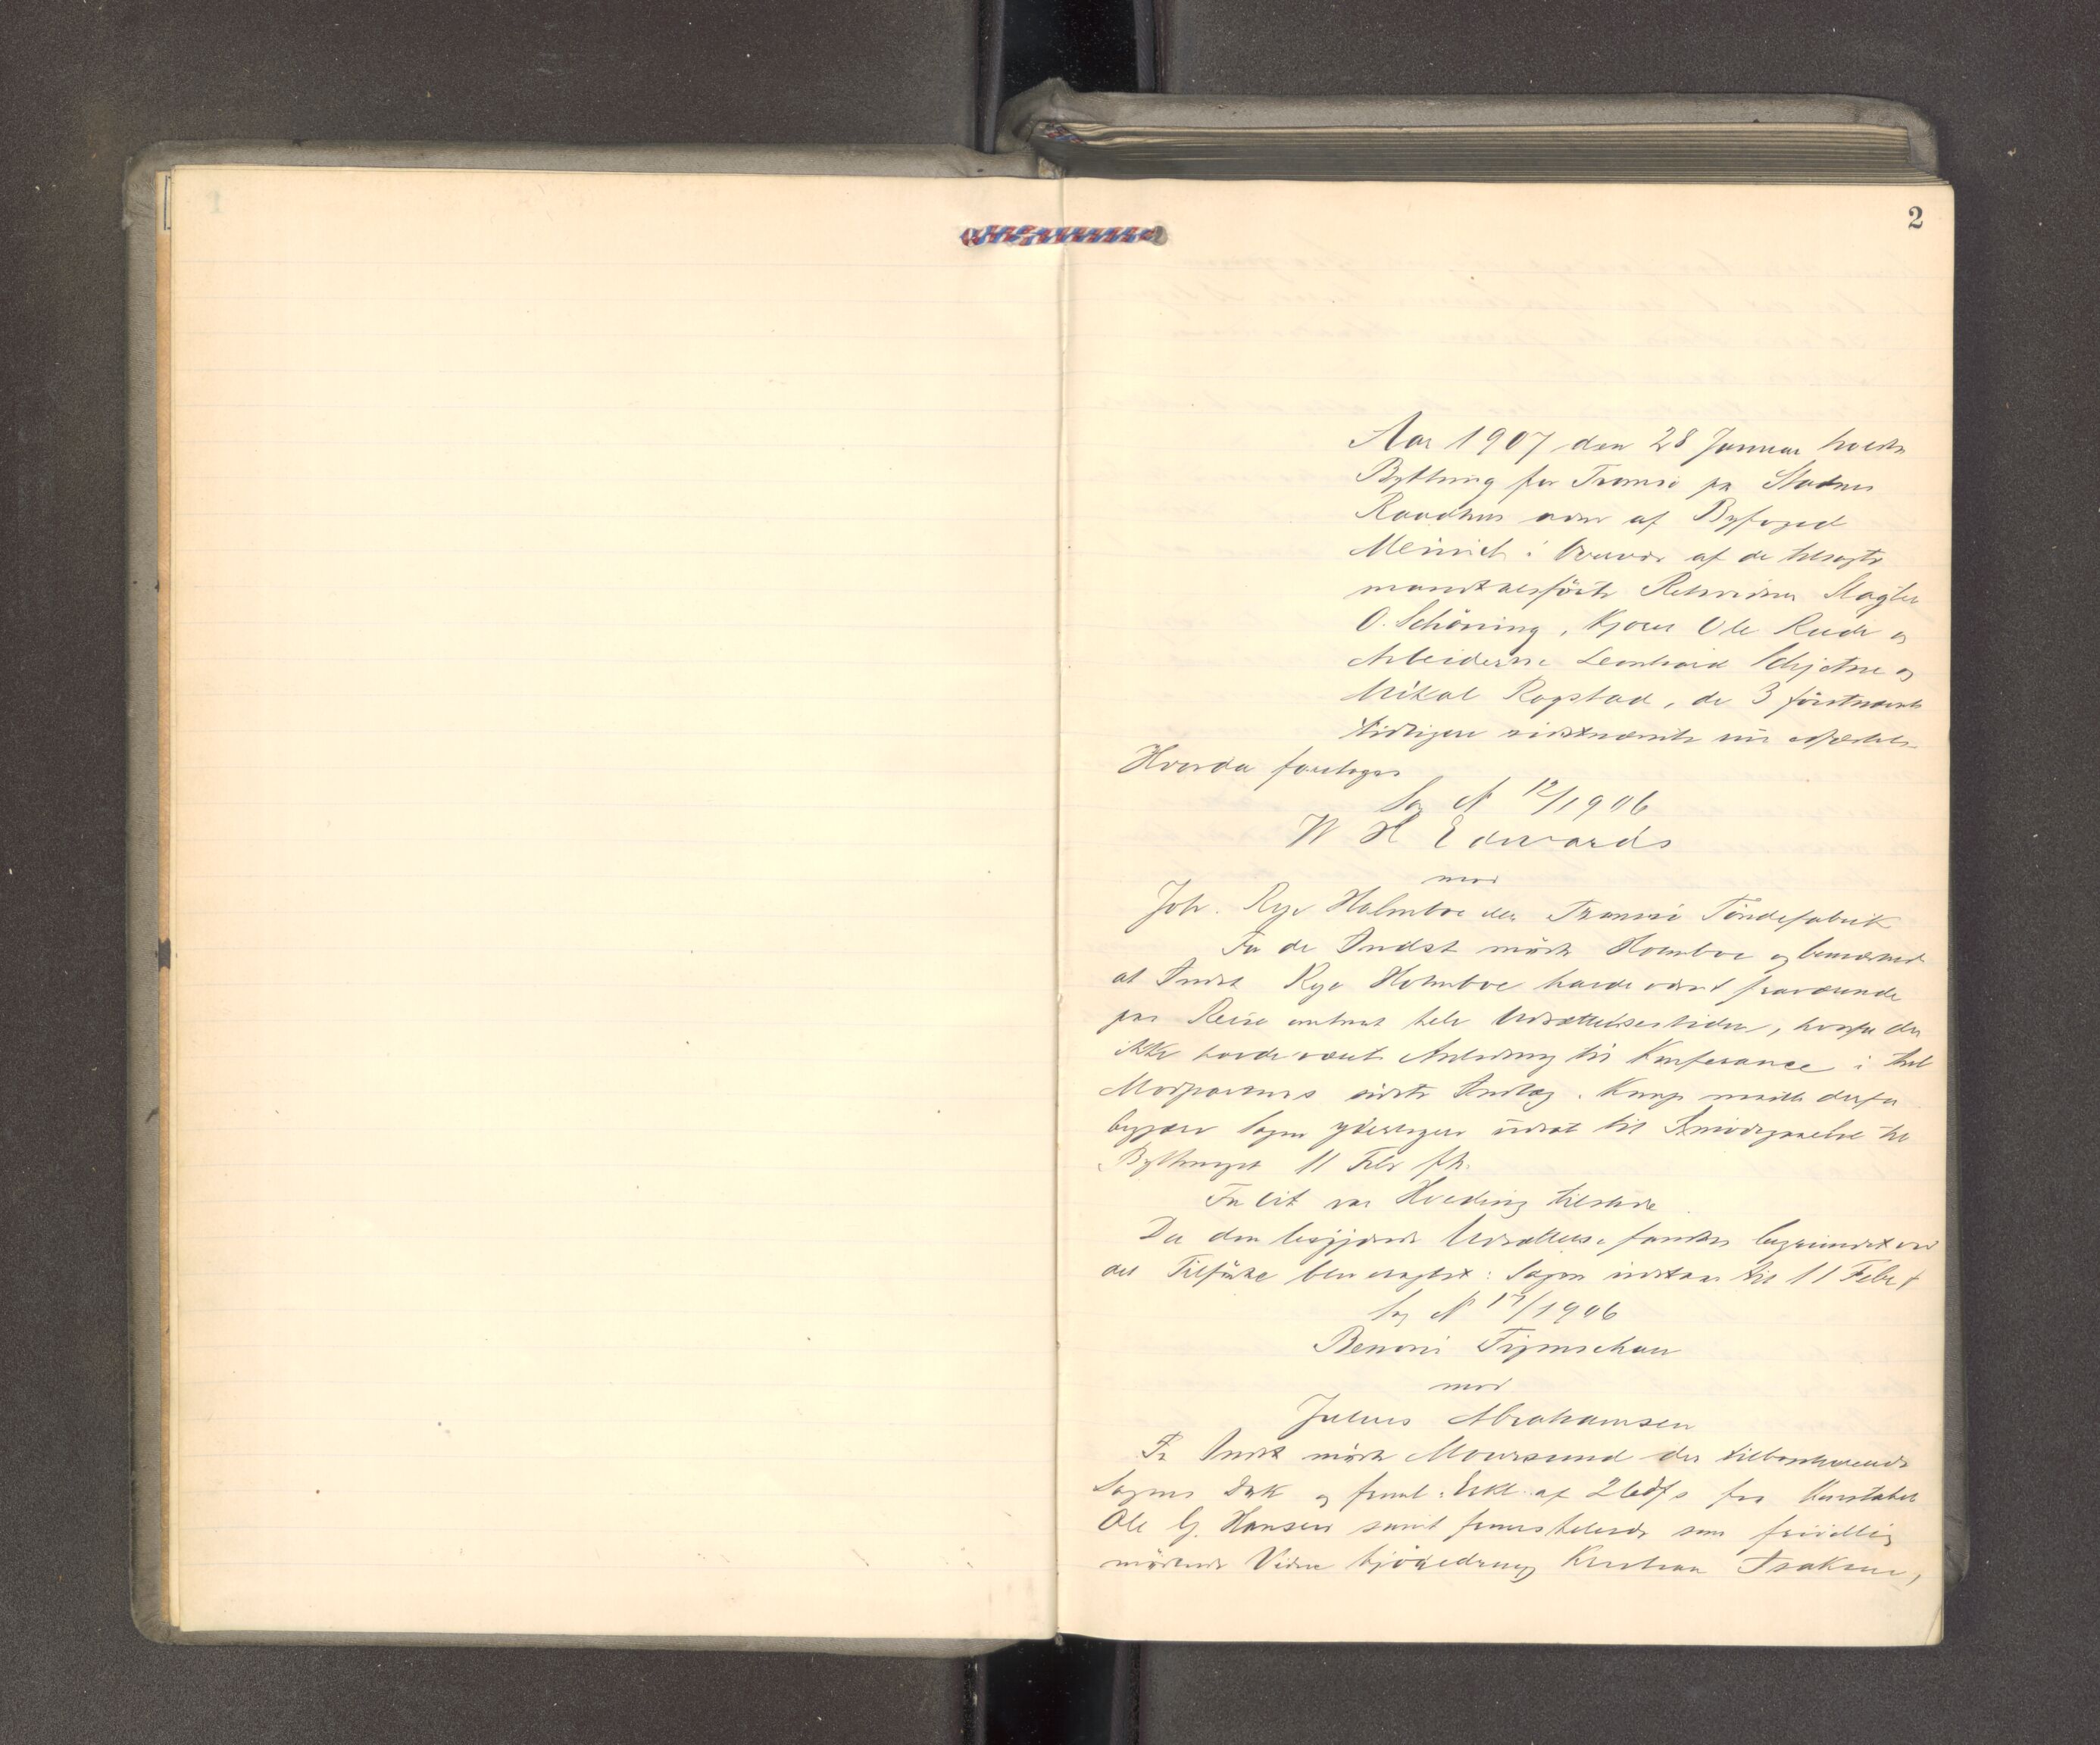 1
2
Aar 1907 den 28 Januar holdtes
Bything for Tromsö pa Stadens
Raadhus adm af Byfoged
Meinich i Overvær af de tilsagte
mandtalsförte Retsvidner Slagter
O. Schöning, Kjører Ole Rude og
Arbeiderne Leonhard Schjetne og
Mikal Rogstad, de 3 förstnævnte
tidligere sidstnævnte nu edfæstet.
Hvorda foretoges
Sag N 12/1906
W H Edwards
mod
Joh. Rye Holmboe eller Tromsö Töndefabrik
For de Indst mödte Holmboe og bemærkede
at Indst Rye Holmboe havde været fraværende
paa Reise omtrent hele Udsættelsestiden, hvorfor der
ikke havde været Anledning til Konferance i Anl
Modpartens sidste Indlæg. Komp maatte derfor
begjære Sagen yderligere udsat til Imödegaaelse til
Bythinget 11 Febr ft.
For Cit var Hveding tilstede
Da den begjærede Udsættelse fandtes begrundet ved
det Tilförte blev eragtet: Sagen udstaar til 11 Febr f
Sag N 17/1906
Benoni
mod
Julius Abrahamsen
For Indst mödte Moursund der tilbageleverede
Sagens Dok og freml. Erkl. af 26 ds fra Konstabel
Ole G. Hansen samt fremstillede som frivillig
mödende Vidne Kristian Isaksen,